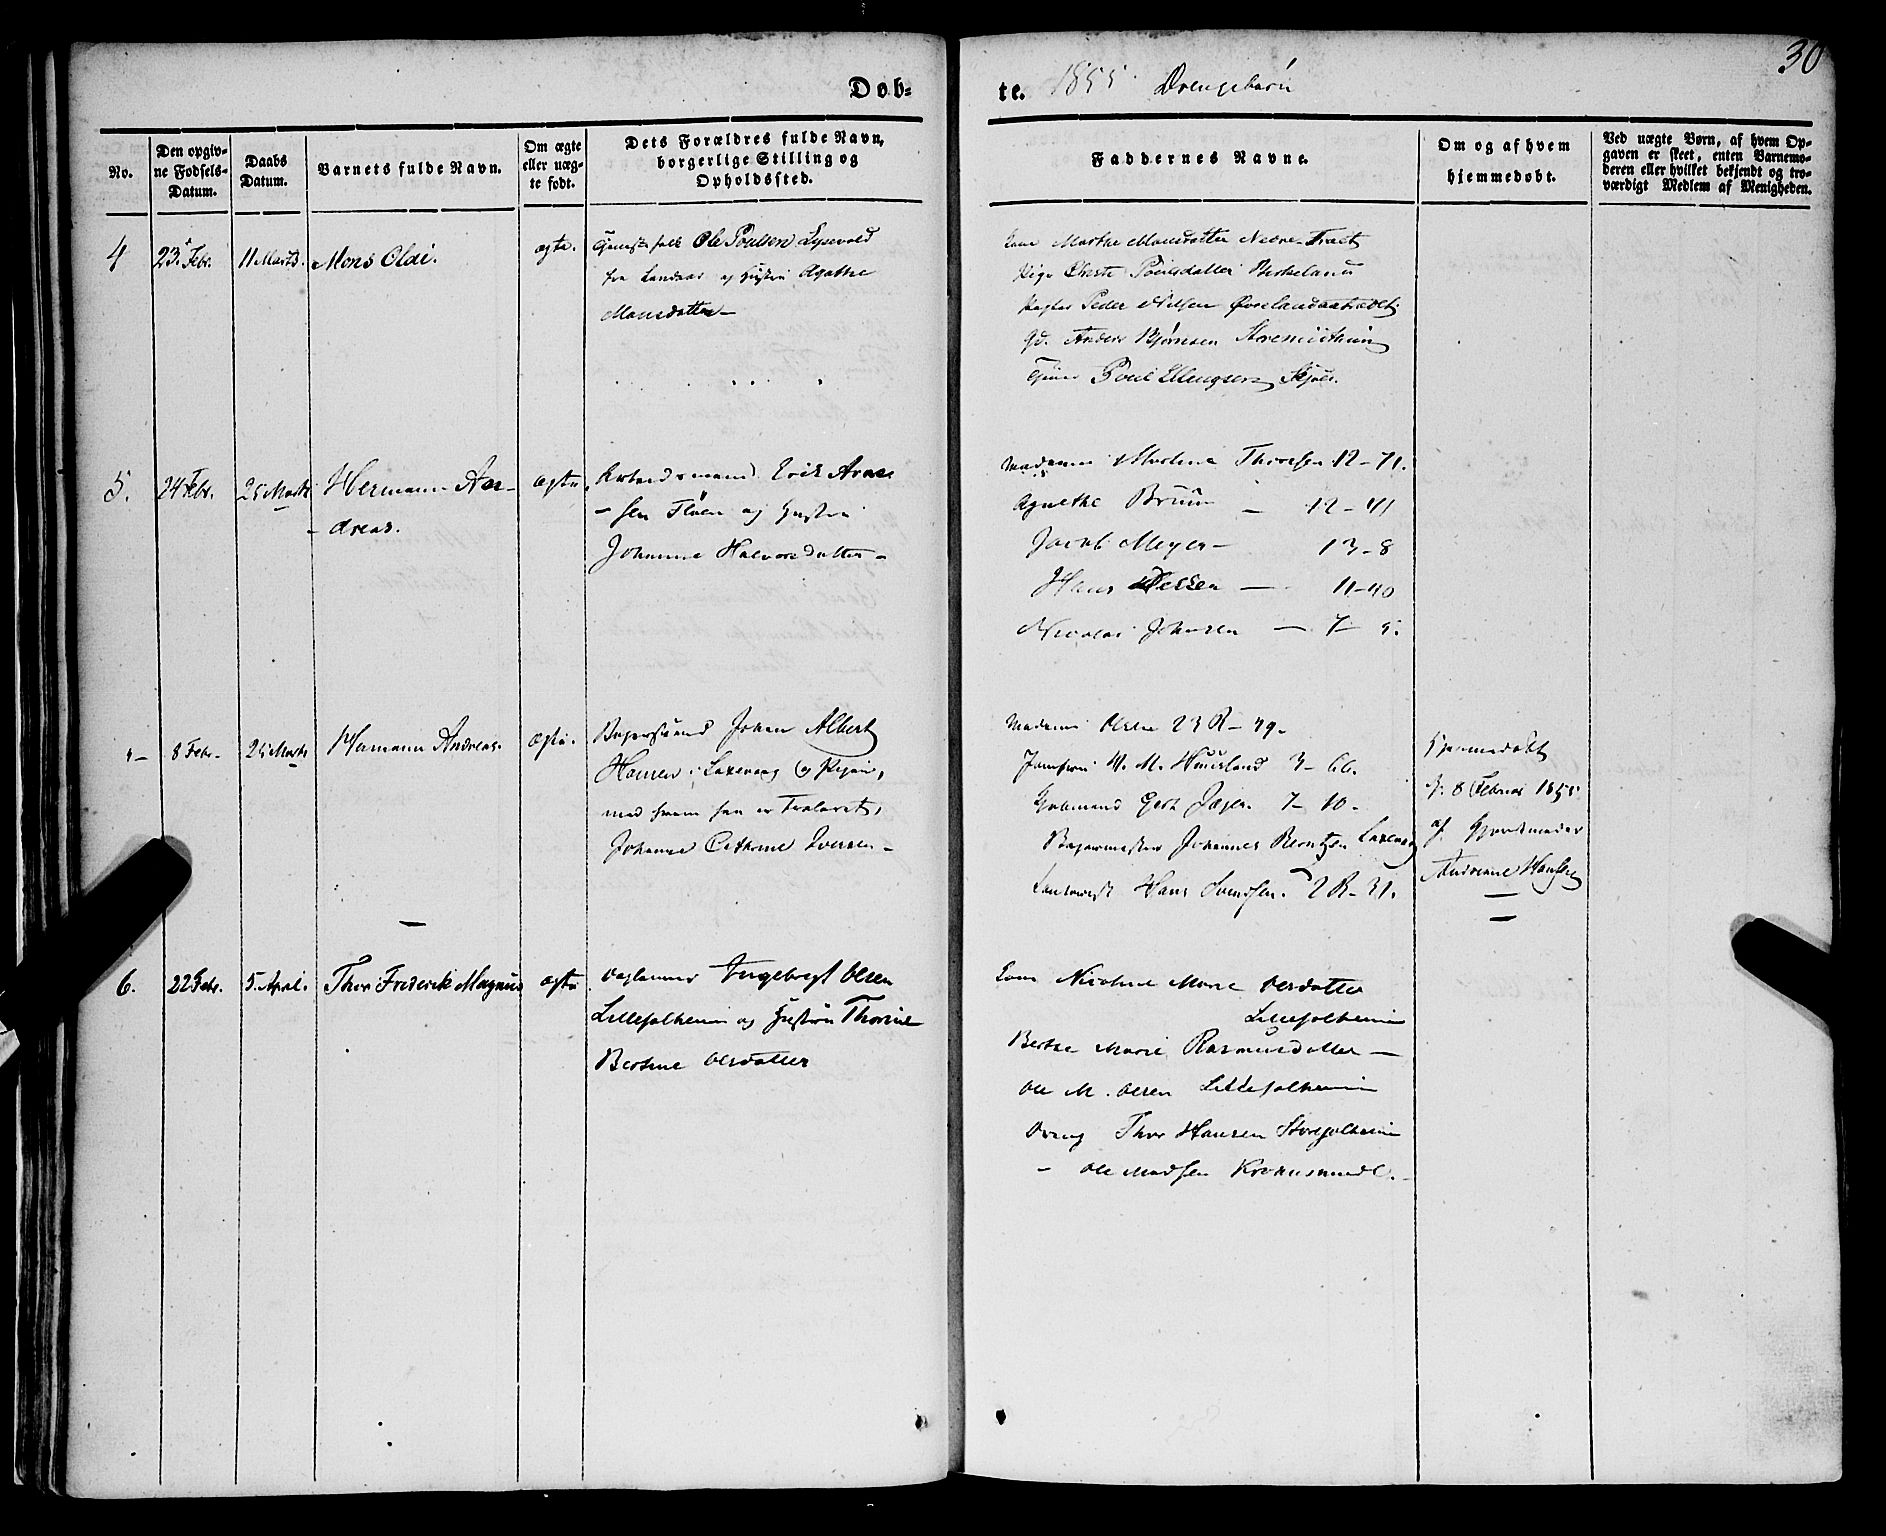 30
Døb-
te. 1855 Drengebørn
No.
Den opgiv-
ne Fødsels-
Datum.
Daabs
Datum.
Barnets fulde Navn.
Om ægte
eller uæg-
te født.
Dets Forældres fulde Navn,
borgerlige Stilling og
Opholdssted.
Faddernes Navne.
Om og af hvem
hjemmedøbt.
Ved uægte Børn, af hvem Op-
gaven er skeet, enten Barnemo-
deren eller hvilket bekjendt og tro-
værdigt Medlem af Menigheden.
4
23 Febr.
11 Marts.
Mons Olai.
ægte.
Ole Poulsen Lysevold
og Hustru Agathe
Monsdatter
Kone Marthe Monsdatter Nedre-Tvæt
Pige Poulsdatter Birkeland
Peder Nilsen
Anders Bjørnsen
Poul Ellingsen
5.
24 Febr.
25 Marts
Hermann An-
dreas.
ægte
Arbeidsmand Erik Arne-
sen Fløen og Hustru
Johanne Halvorsdatter
Madame Martine Thoresen 12-71.
Agnethe Bruun 12-41
Jacob Meyer 13-8
Hans 11-40
Nicolai Johnsen 7- 5.
8 Febr.
25 Marts
Hermann Andreas.
ægte.
Bagersvend Johan Albert
Hansen i Laxevaag og Pigen,
med hvem han er Trolovet,
Johanne Cathrine Iversen
Madame Olsen 23 R-79.
Jomfru M. Huusland 3-66.
Gert 7-10.
Bagermester Johannes Berntzen Laxevaag
Hans Svendsen. 2 R-31.
Hjemmedøbt
d. 8 Februar 1855
af Gjordmoder
Andrine Hansen
6.
22 Febr.
5. April.
Thor Frederik Magnus
ægte
Daglønner Ingebrigt Olsen
Lillejolheim og Hustru Thorine
Bertine Olsdatter
Kone Nicoline Marie Olsdatter
Lillejolheim
Berthe Marie Rasmusdatter
Ole M. Olsen Lillejolheim
Dreng Thor Hansen Storejolheim
- Ole Madsen